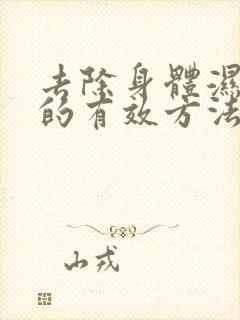 去除身體濕
的有效方法
山戎